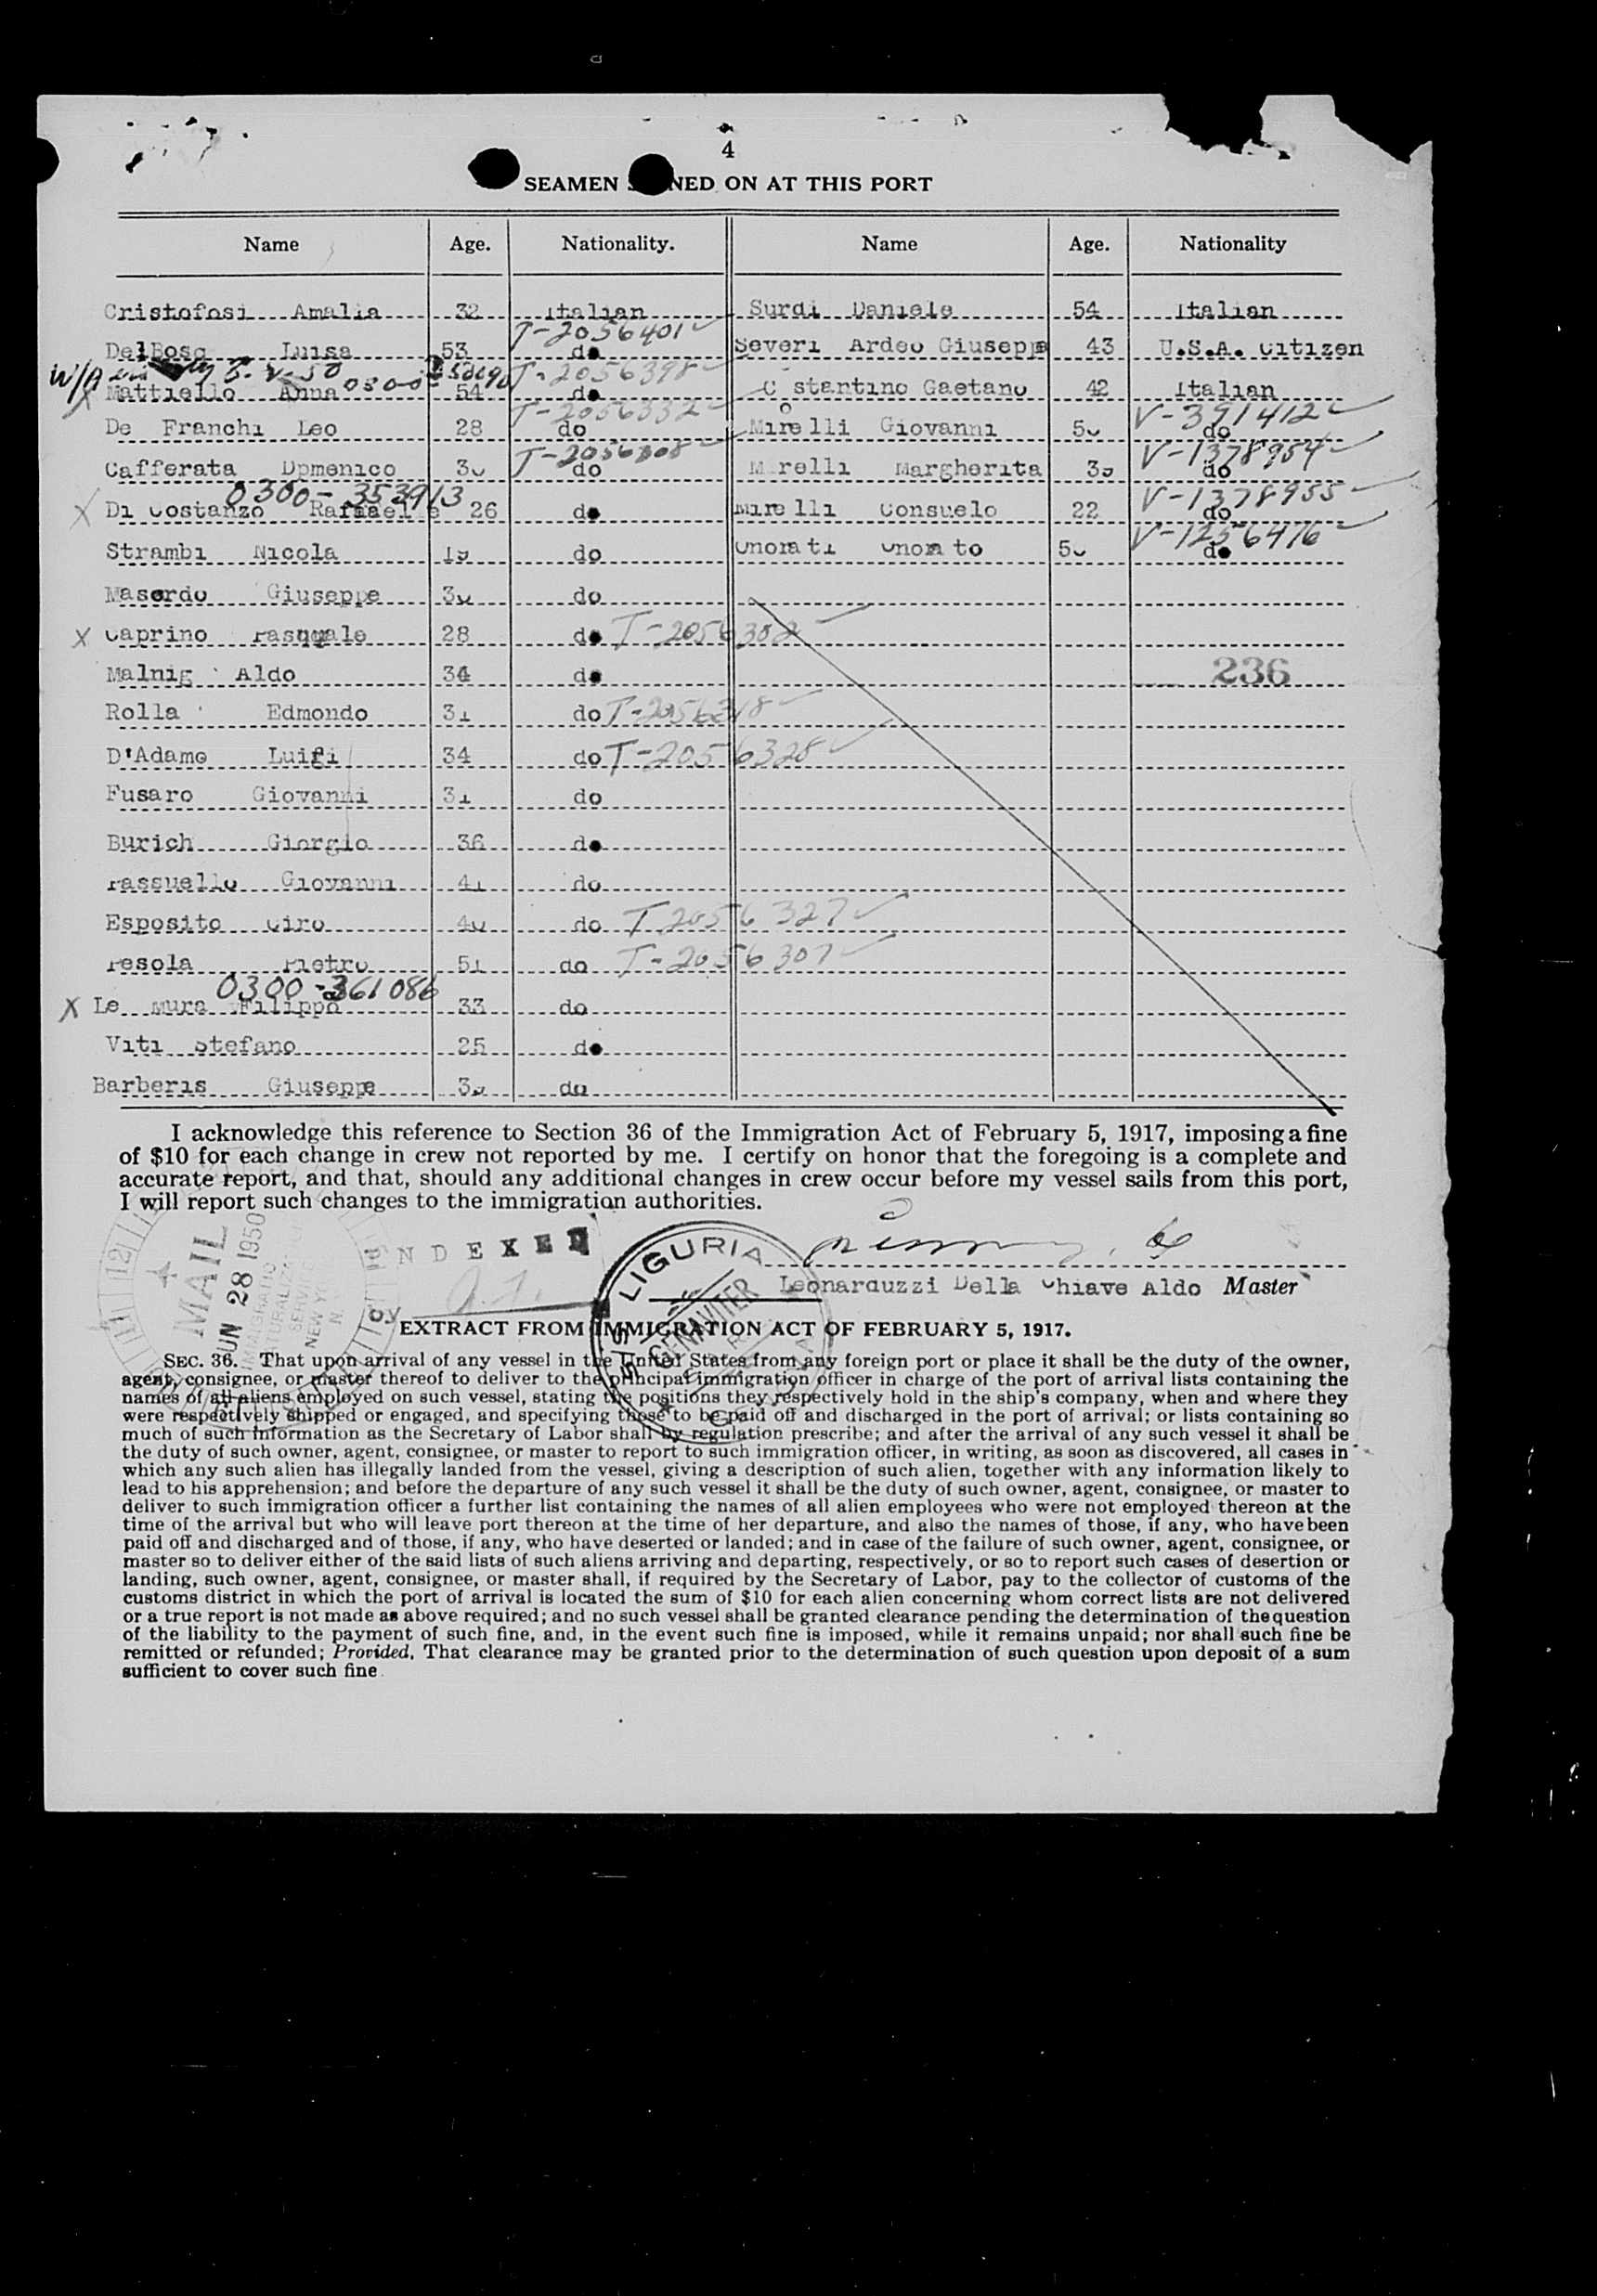 4
SEAMEN NED ON AT THIS PORT
Name Age. Nationality. Name Age. Nationality
Cristofosi Amalia 32 Italian Surdi Daniele 54 Italian
T-2056401
DelBosc Luisa 53 do Severi Ardeo Giuseppe 43 U.S.A. Citizen
W/A T-2056398
X Mattiello Anna 0300- 54 do Costantino Gaetano 42 Italian
T-2056332 V-391412
De Franchi Leo 28 do Mirelli Giovanni 50 do
T-2056308 V-1378954
Cafferata Domenico 30 do Mirelli Margherita 39 do
0300-353913 V-1378955
X Di Costanzo Raffaelle 26 do Mirelli Consuelo 22 do
V-1256476
Strambi Nicola 19 do Onorati Onorato 50 do
Masordo Giuseppe 30 do
X Caprino Pasquale 28 do T-2056302
Malnig Aldo 34 do
236
Rolla Edmondo 31 do T-2056318
D'Adamo Luigi 34 do T-2056328
Fusaro Giovanni 31 do
Burich Giorgio 36 do
Passuello Giovanni 41 do
Esposito Ciro 40 do T 2056327
Pesola Pietro 51 do T-2056307
0300-361086
X Le Mura Filippo 33 do
Viti Stefano 25 do
Barberis Giuseppe 39 do
I acknowledge this reference to Section 36 of the Immigration Act of February 5, 1917, imposing a fine
of $10 for each change in crew not reported by me. I certify on honor that the foregoing is a complete and
accurate report, and that, should any additional changes in crew occur before my vessel sails from this port,
I will report such changes to the immigration authorities.
MAIL
JUN 28 1950
NEW
NDEXED
by
LIGURIA
GENAVITER
Leonarduzzi Della Chiave Aldo Master
EXTRACT FROM IMMIGRATION ACT OF FEBRUARY 5, 1917.
SEC. 36. That upon arrival of any vessel in the United States from any foreign port or place it shall be the duty of the owner,
agent, consignee, or master thereof to deliver to the principal immigration officer in charge of the port of arrival lists containing the
names of all aliens employed on such vessel, stating the positions they respectively hold in the ship's company, when and where they
were respectively shipped or engaged, and specifying those to be paid off and discharged in the port of arrival; or lists containing so
much of such information as the Secretary of Labor shall by regulation prescribe; and after the arrival of any such vessel it shall be
the duty of such owner, agent, consignee, or master to report to such immigration officer, in writing, as soon as discovered, all cases in
which any such alien has illegally landed from the vessel, giving a description of such alien, together with any information likely to
lead to his apprehension; and before the departure of any such vessel it shall be the duty of such owner, agent, consignee, or master to
deliver to such immigration officer a further list containing the names of all alien employees who were not employed thereon at the
time of the arrival but who will leave port thereon at the time of her departure, and also the names of those, if any, who have been
paid off and discharged and of those, if any, who have deserted or landed; and in case of the failure of such owner, agent, consignee, or
master so to deliver either of the said lists of such aliens arriving and departing, respectively, or so to report such cases of desertion or
landing, such owner, agent, consignee, or master shall, if required by the Secretary of Labor, pay to the collector of customs of the
customs district in which the port of arrival is located the sum of $10 for each alien concerning whom correct lists are not delivered
or a true report is not made as above required; and no such vessel shall be granted clearance pending the determination of the question
of the liability to the payment of such fine, and, in the event such fine is imposed, while it remains unpaid; nor shall such fine be
remitted or refunded; Provided, That clearance may be granted prior to the determination of such question upon deposit of a sum
sufficient to cover such fine.